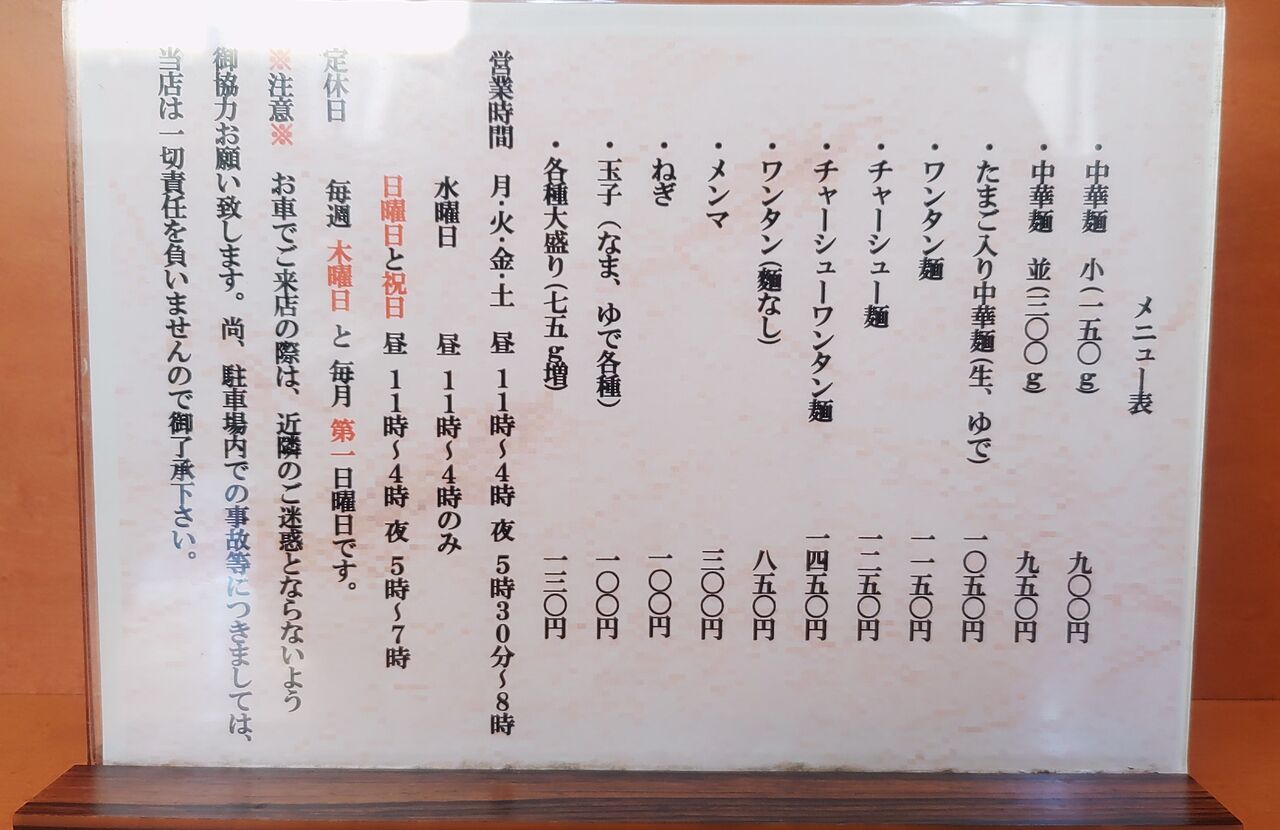 メニュー表
・中華麺　小（一五〇ｇ）　九〇〇円
・中華麺　並（三〇〇ｇ）　九五〇円
・たまご入り中華麺（生、ゆで）　一〇五〇円
・ワンタン麺　一一五〇円
・チャーシュー麺　一二五〇円
・チャーシューワンタン麺　一四五〇円
・ワンタン（麺なし）　八五〇円
・メンマ　三〇〇円
・ねぎ　一〇〇円
・玉子（なま、ゆで各種）　一〇〇円
・各種大盛り（七五ｇ増）　一三〇円
営業時間　月・火・金・土　昼　１１時～４時　夜　５時３０分～８時
水曜日　昼　１１時～４時のみ
日曜日と祝日　昼　１１時～４時　夜　５時～７時
定休日　毎週　木曜日　と　毎月　第一日曜日です。
※注意※　お車でご来店の際は、近隣のご迷惑とならないよう
御協力お願い致します。尚、駐車場内での事故等につきましては、
当店は一切責任を負いませんので御了承下さい。